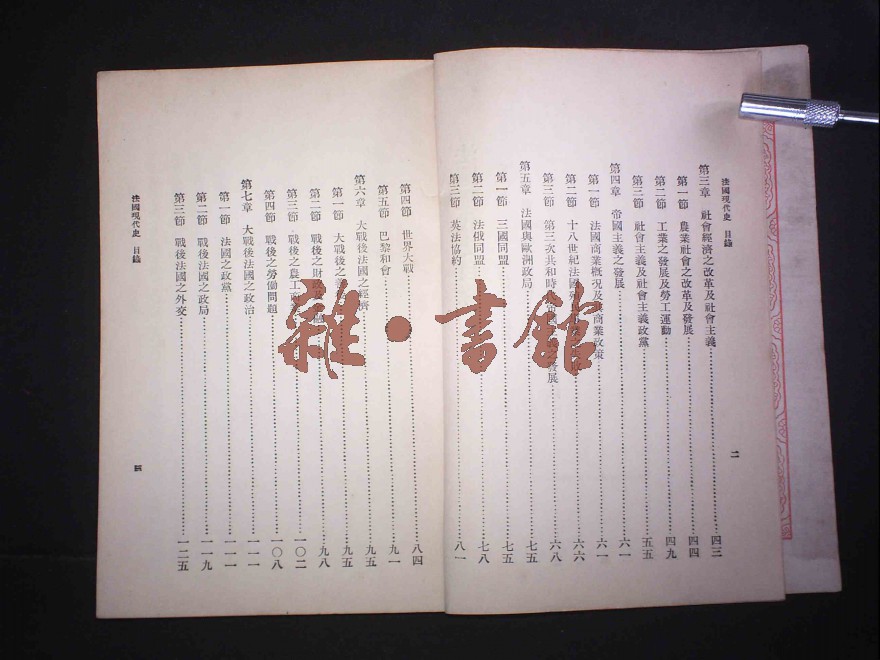 法國現代史 目錄
第三章 社會經濟之改革及社會主義…四三
第一節 農業社會之改革及發展…四四
第二節 工業之發展及勞工運動…四九
第三節 社會主義及社會主義政黨…五五
第四章 帝國主義之發展…六一
第一節 法國商業概況及其商業政策…六一
第二節 十八世紀法國…六六
第三節 第三次共和時代…發展…六八
第五章 法國與歐洲政局…七五
第一節 三國同盟…七五
第二節 法俄同盟…七八
第三節 英法協約…八一
二
第四節 世界大戰…八四
第五節 巴黎和會…九一
第六章 大戰後法國之經濟…九五
第一節 大戰後之…九五
第二節 戰後之財政…九八
第三節 戰後之農工商…一〇二
第四節 戰後之勞働問題…一〇八
第七章 大戰後法國之政治…一一一
第一節 法國之政黨…一一一
第二節 戰後法國之政局…一一九
第三節 戰後法國之外交…一二五
法國現代史 目錄
雜·書館